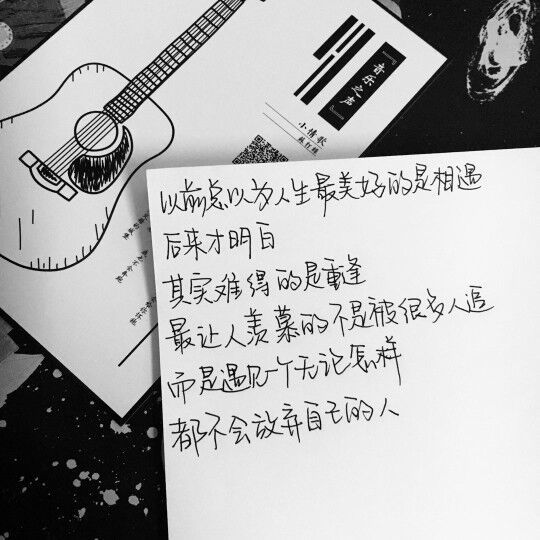 『音乐之声』
小情歌
苏打绿
以前总以为人生最美好的是相遇
后来才明白
其实难得的是重逢
最让人羡慕的不是被很多人追
而是遇见一个无论怎样
都不会放弃自己的人